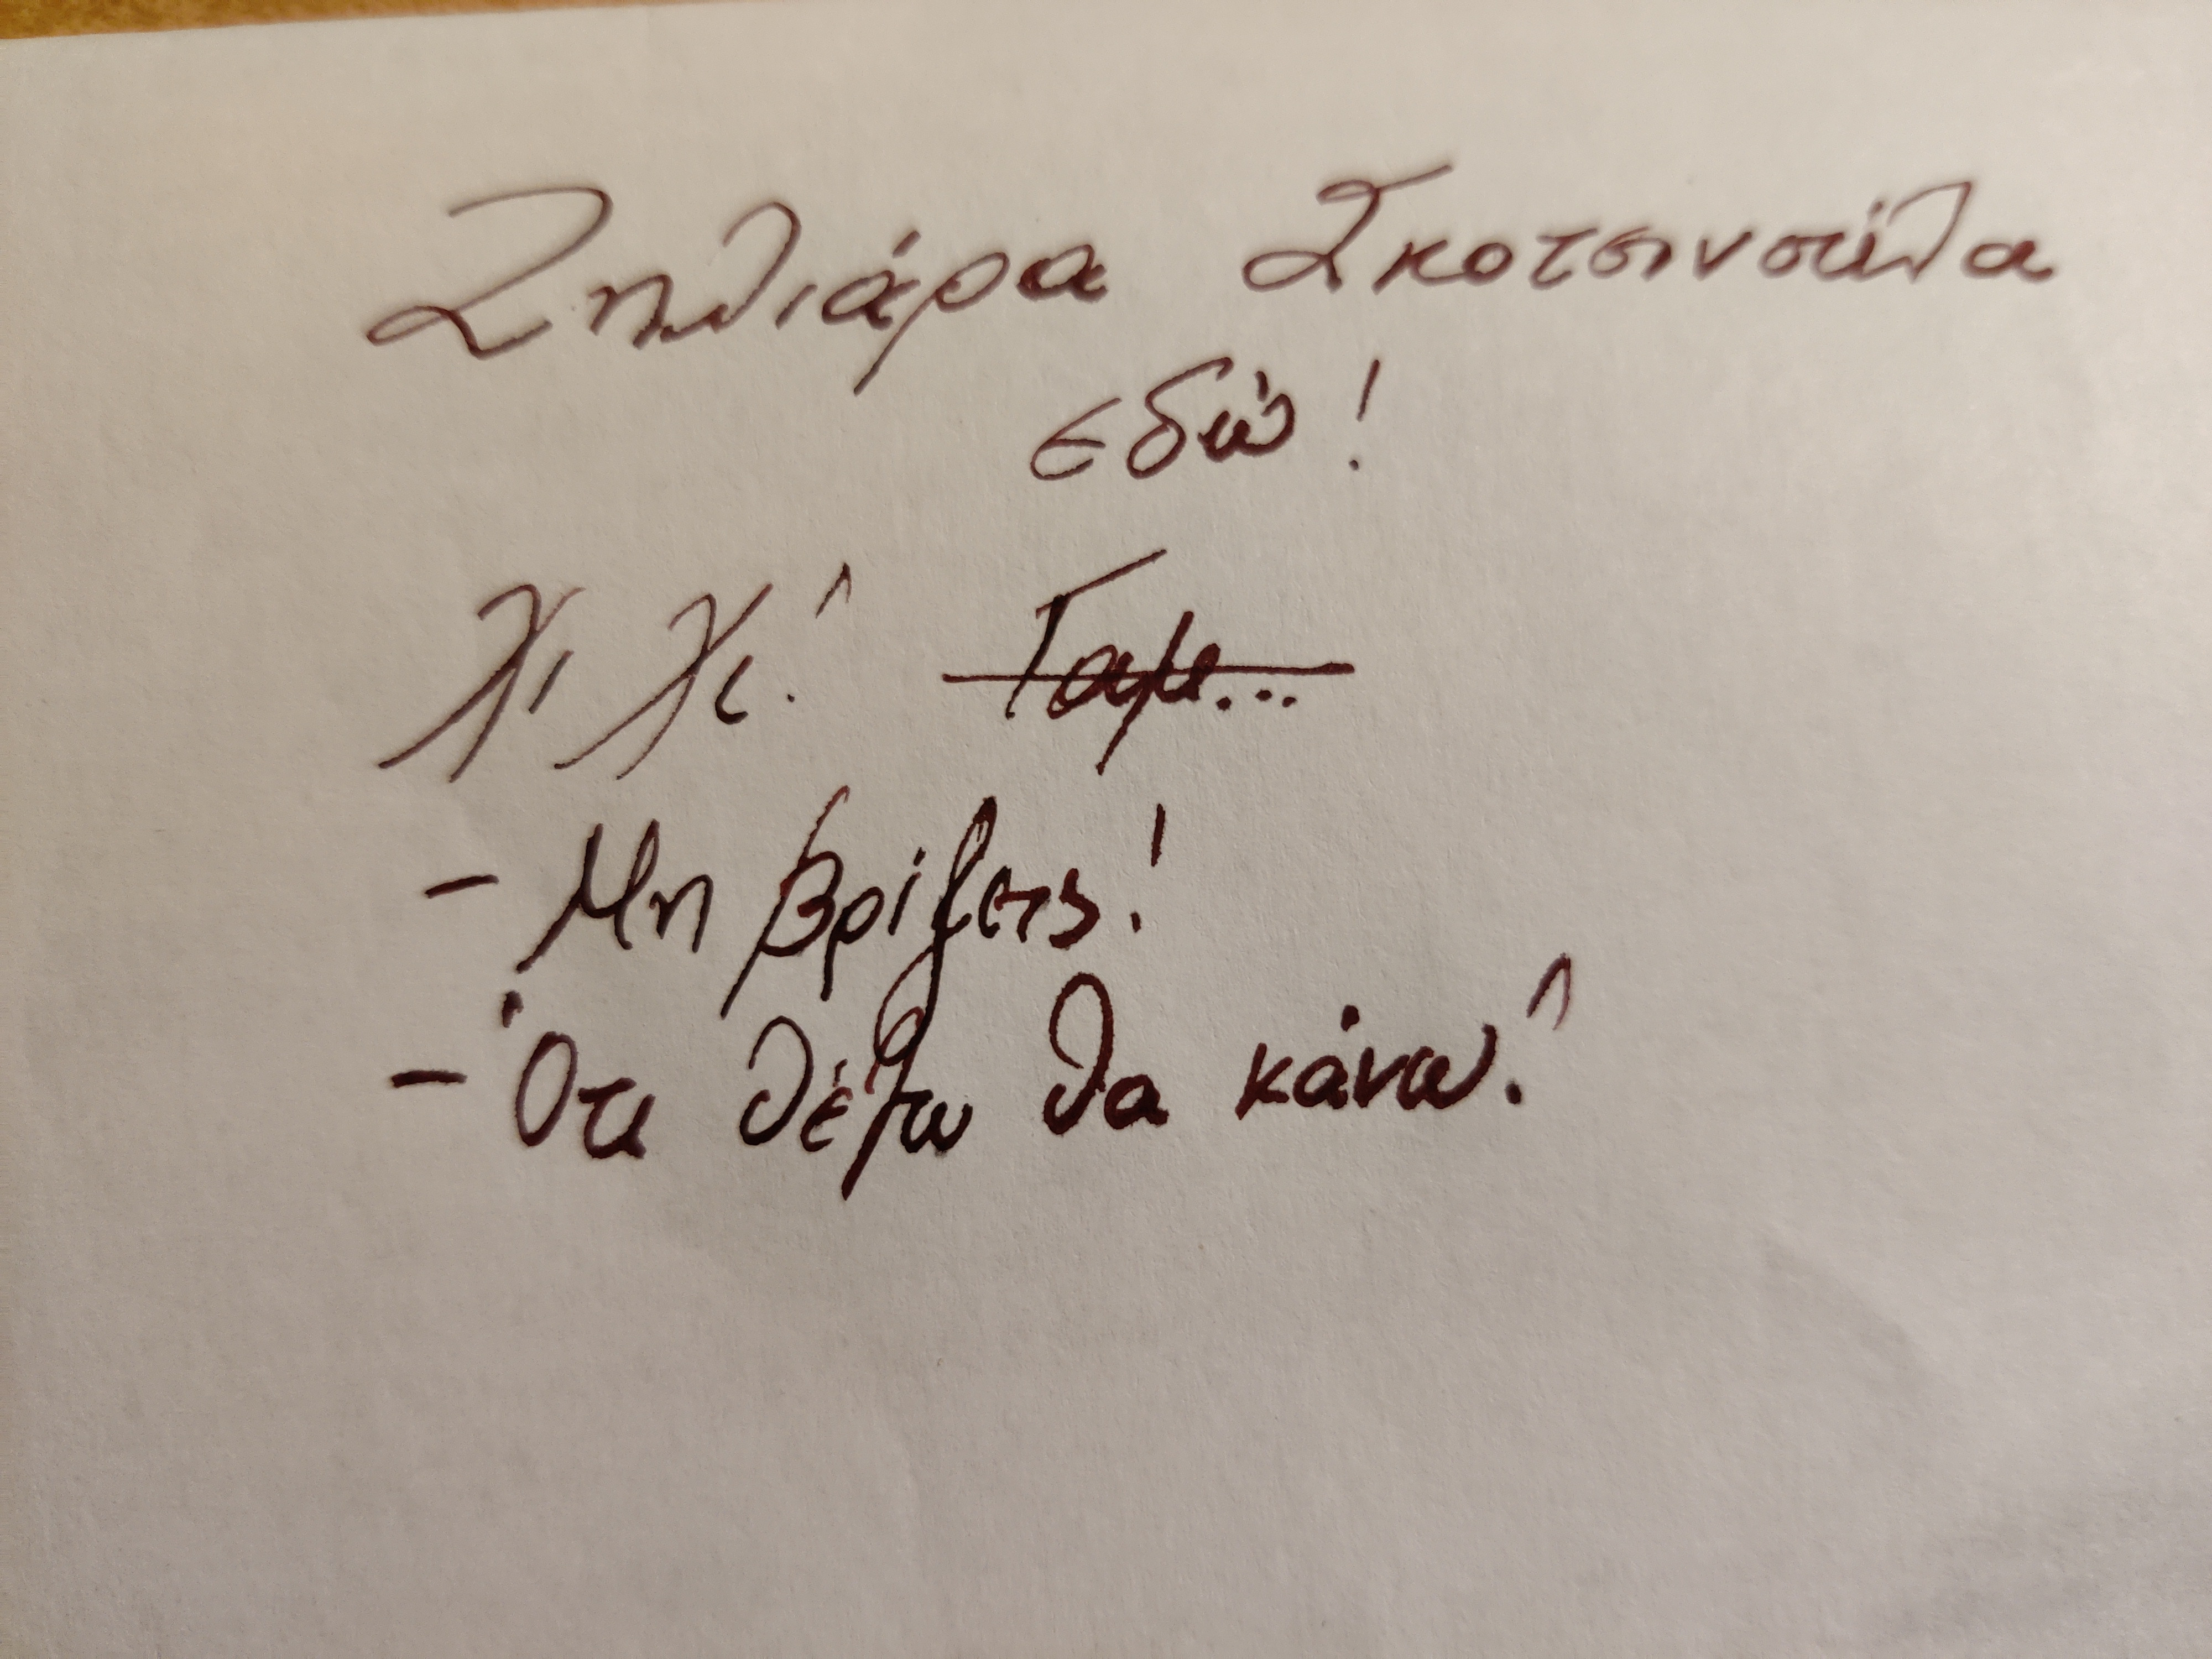 Σκοτεινούλα
εδώ!
Χι Χι! Γαμ...
- Μη βρίζεις!
- Ότι θέλω θα κάνω!